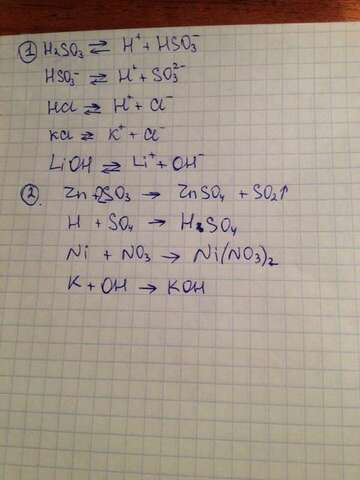 ① H₂SO₃ ⇄ H⁺ + HSO₃⁻
HSO₃⁻ ⇄ H⁺ + SO₃²⁻
HCl ⇄ H⁺ + Cl⁻
KCl ⇄ K⁺ + Cl⁻
LiOH ⇄ Li⁺ + OH⁻
② Zn + 2SO₃ → ZnSO₄ + SO₂↑
H + SO₄ → H₂SO₄
Ni + NO₃ → Ni(NO₃)₂
K + OH → KOH